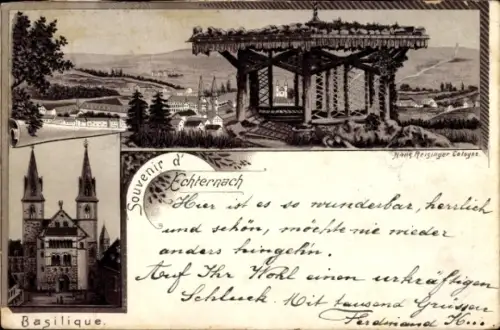 Hans Reisinger Cologne.
Souvenir d'
Echternach
Hier ist es so wunderbar, herrlich
und schön, möchte nie wieder
anders hingeh'n.
Auf Ihr Wohl einen urkräftigen
Schluck. Mit tausend Grüssen
Ferdinand
Basilique.